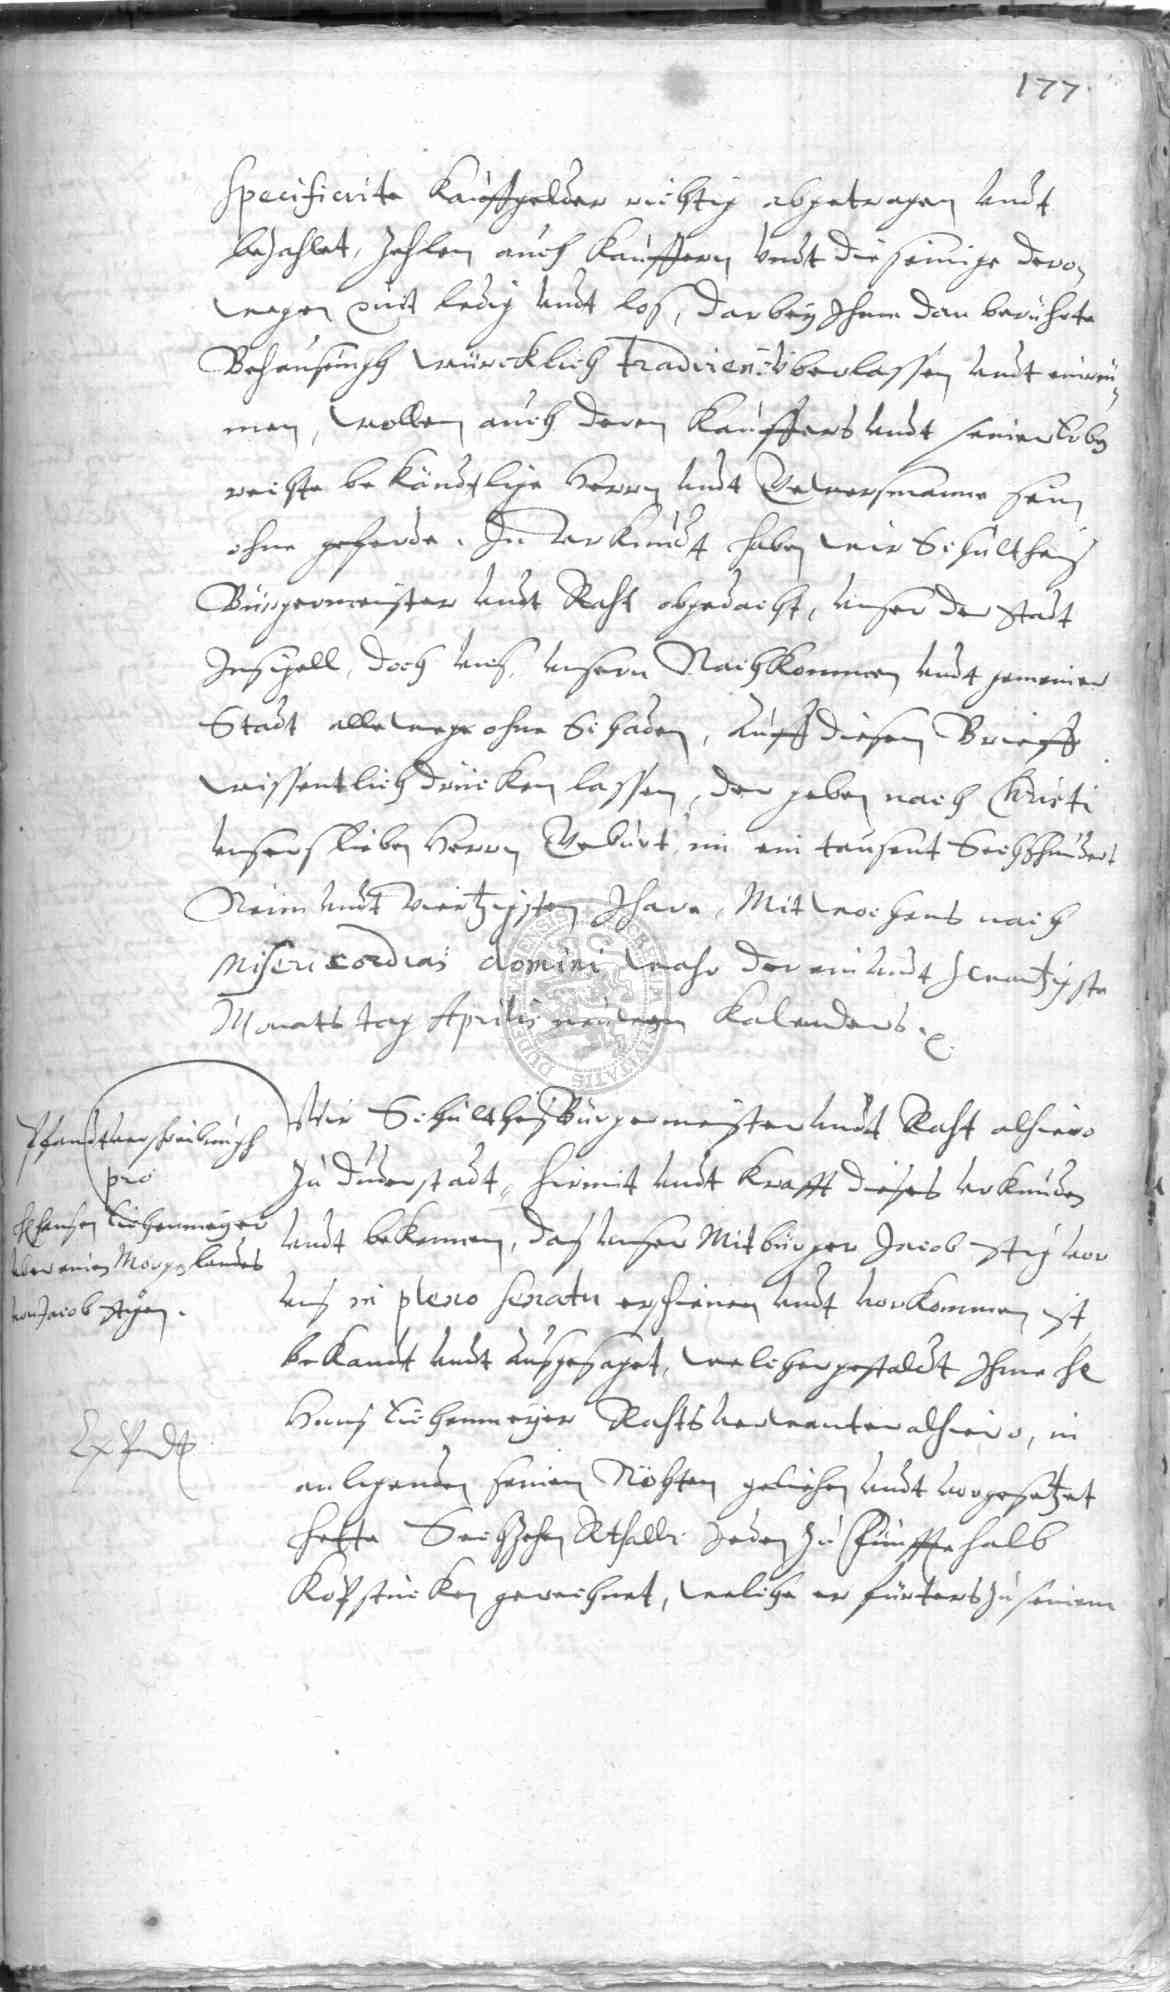 177.
specificirte Kauffgelder richtig abgetragen undt
bezahlet, zehlen auch Kauffern undt die seinige dero
wegen quit ledig undt loß, darbey Ihm dan berührte
Behausungh würcklich tradiren überlassen undt einreü-
men, wollen auch deren Kauffers undt seiner Erben
rechte bekändtliche Herrn undt Gewersmanne sein
ohne geferde. In Urkundt haben wir Schultheiß
Bürgermeister undt Raht obgedacht, unser der Stadt
Insigell, doch unß, unsern Nachkommen undt gemeiner
Stadt allewege ohne Schaden, auff diesen Brieff
wissentlich drücken lassen, der geben nach Christi
unsers lieben Herrn Geburt im ein tausent Sechshundert
Neün undt Viertzigsten Jhare, Mitwochens nach
Misericordias domini wahr der ein undt zwantzigste
Monats tag Aprilis neuen Kalenders.
Pfandtverschreibungh
pro
H Hansen Lichenmeyer
uber einen Morgen landes
von Jacob Stigen.
Wir Schultheiß Bürgermeister undt Raht alhiero
Zu Duderstadt, hirmit undt Krafft dieses urkunden
undt bekennen, daß unser Mitbürger Jacob Stig vor
unß in pleno senatu erschienen undt vorkommen ist,
bekandt undt außgesaget, welicher gestaldt Ihme H
Hanß Lichenmeyer Rahtsverwanter alhiero, in
anligenden seinen Nöhten geliehen undt vorgesetzet
hette Sechzehen Rthallr jeden zu Fünffte halb
Kopstücken gerechnet, weliche er fürters zu seinem